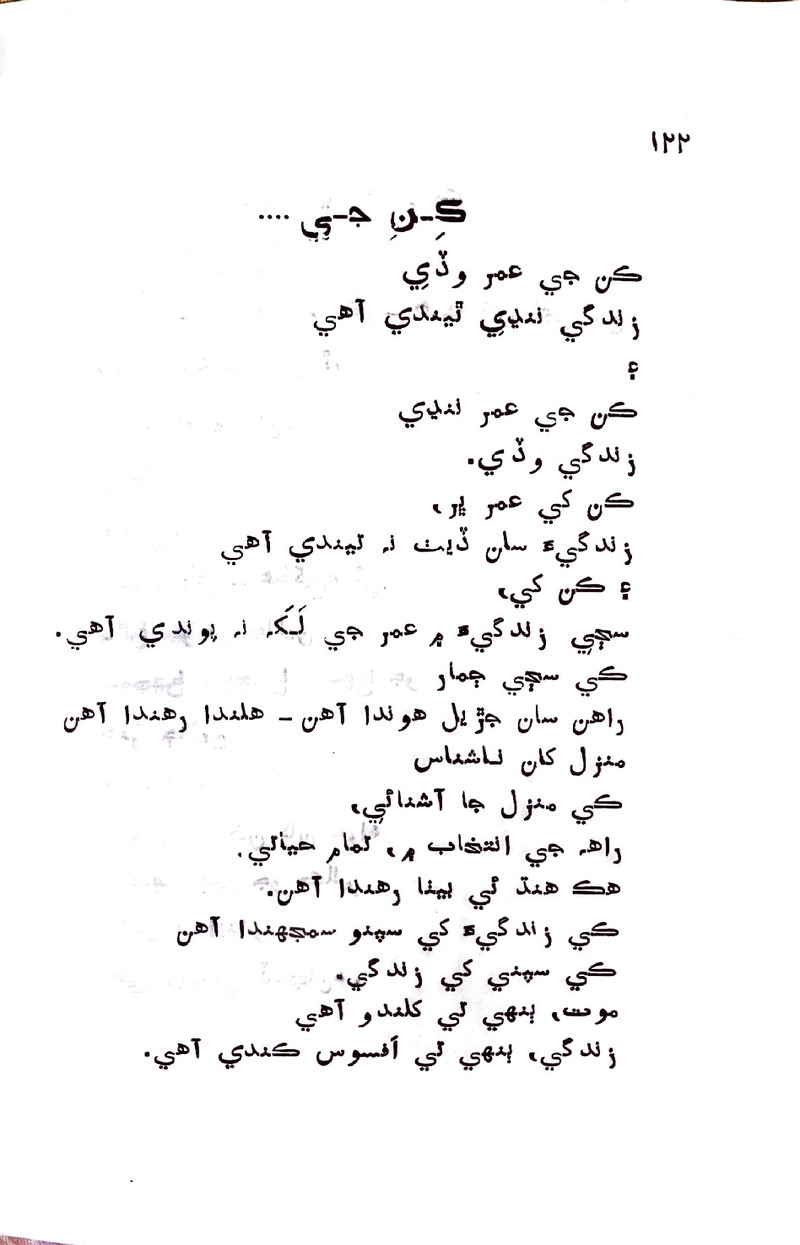 ١٢٢
ڪِـنِ جـيِ ....
ڪن جي عمر وڏيِ
زندگي ننڍيِ ٿيندي آهي
۽
ڪن جي عمر ننڍي
زندگي وڏي.
ڪن کي عمر ڀر،
زندگيءَ سان ڏيٺ نہ ٿيندي آهي
۽ ڪن کي،
سڄيِ زندگيءَ ۾ عمر جي لَـکَہ نہ پوندي آهي.
ڪي سڄي ڄمار
راهن سان جڙيل هوندا آهن ـ هلندا رهندا آهن
منزل کان ناشناس
ڪي منزل جا آشنائيِ،
راهہ جي انتخاب ۾، تمام حياتي.
هڪ هنڌ ئي بيٺا رهندا آهن.
ڪي زندگيءَ کي سپنو سمجهندا آهن
ڪي سپني کي زندگي.
موت، ٻنهي تي کلندو آهي
زندگي، ٻنهي تي اَفسوس ڪندي آهي.